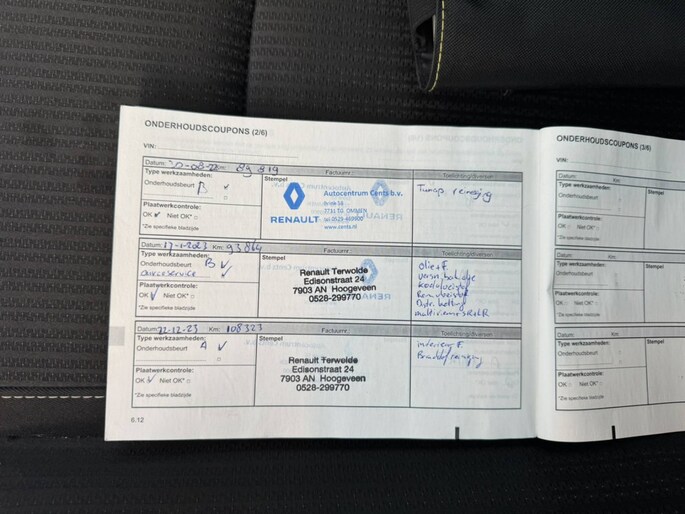 ONDERHOUDSCOUPONS (2/6)
VIN:
Datum: -08-22 89 819 Factuurnr.: Toelichting/diversen
Type werkzaamheden: Stempel
Onderhoudsbeurt B ✓
Plaatwerkcontrole:
OK ✓ Niet OK* □
*Zie specifieke bladzijde
RENAULT
Autocentrum Cents b.v.
www.cents.nl
Tunap reiniging
Datum: 17-1-2023 Km: 93864 Factuurnr.: Toelichting/diversen
Type werkzaamheden: Stempel
Onderhoudsbeurt B ✓
Aircoservice ✓
Plaatwerkcontrole:
OK ✓ Niet OK* □
*Zie specifieke bladzijde
Renault Terwolde
Edisonstraat 24
7903 AN Hoogeveen
0528-299770
Olie + F.
Koelvloeistof
Remvloeistof
Distr. ketting
Datum: 22-12-23 Km: 108323 Factuurnr.: Toelichting/diversen
Type werkzaamheden: Stempel
Onderhoudsbeurt A ✓
Plaatwerkcontrole:
OK ✓ Niet OK* □
*Zie specifieke bladzijde
Renault Terwolde
Edisonstraat 24
7903 AN Hoogeveen
0528-299770
interieur F.
6.12
ONDERHOUDSCOUPONS (3/6)
VIN:
Datum: Km:
Type werkzaamheden: Stempel
Onderhoudsbeurt □
Plaatwerkcontrole:
OK □ Niet OK* □
*Zie specifieke bladzijde
Datum: Km:
Type werkzaamheden: Stempel
Onderhoudsbeurt □
Plaatwerkcontrole:
OK □ Niet OK* □
*Zie specifieke bladzijde
Datum: Km:
Type werkzaamheden: Stempel
Onderhoudsbeurt □
Plaatwerkcontrole:
OK □ Niet OK* □
*Zie specifieke bladzijde